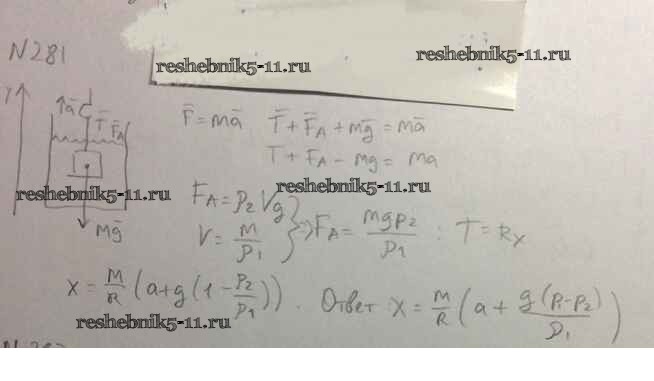 N281
reshebnik5-11.ru
reshebnik5-11.ru
y
ā
T̄ F̄A
mḡ
F̄ = mā T̄ + F̄A + mḡ = mā
T + FA − mg = ma
reshebnik5-11.ru
reshebnik5-11.ru
FA = ρ2 Vg
V = m/ρ1 } ⇒ FA = mgρ2/ρ1 ; T = kx
x = m/k (a+g(1−ρ2/ρ1)). Ответ: x = m/k (a + g(ρ1−ρ2)/ρ1)
reshebnik5-11.ru